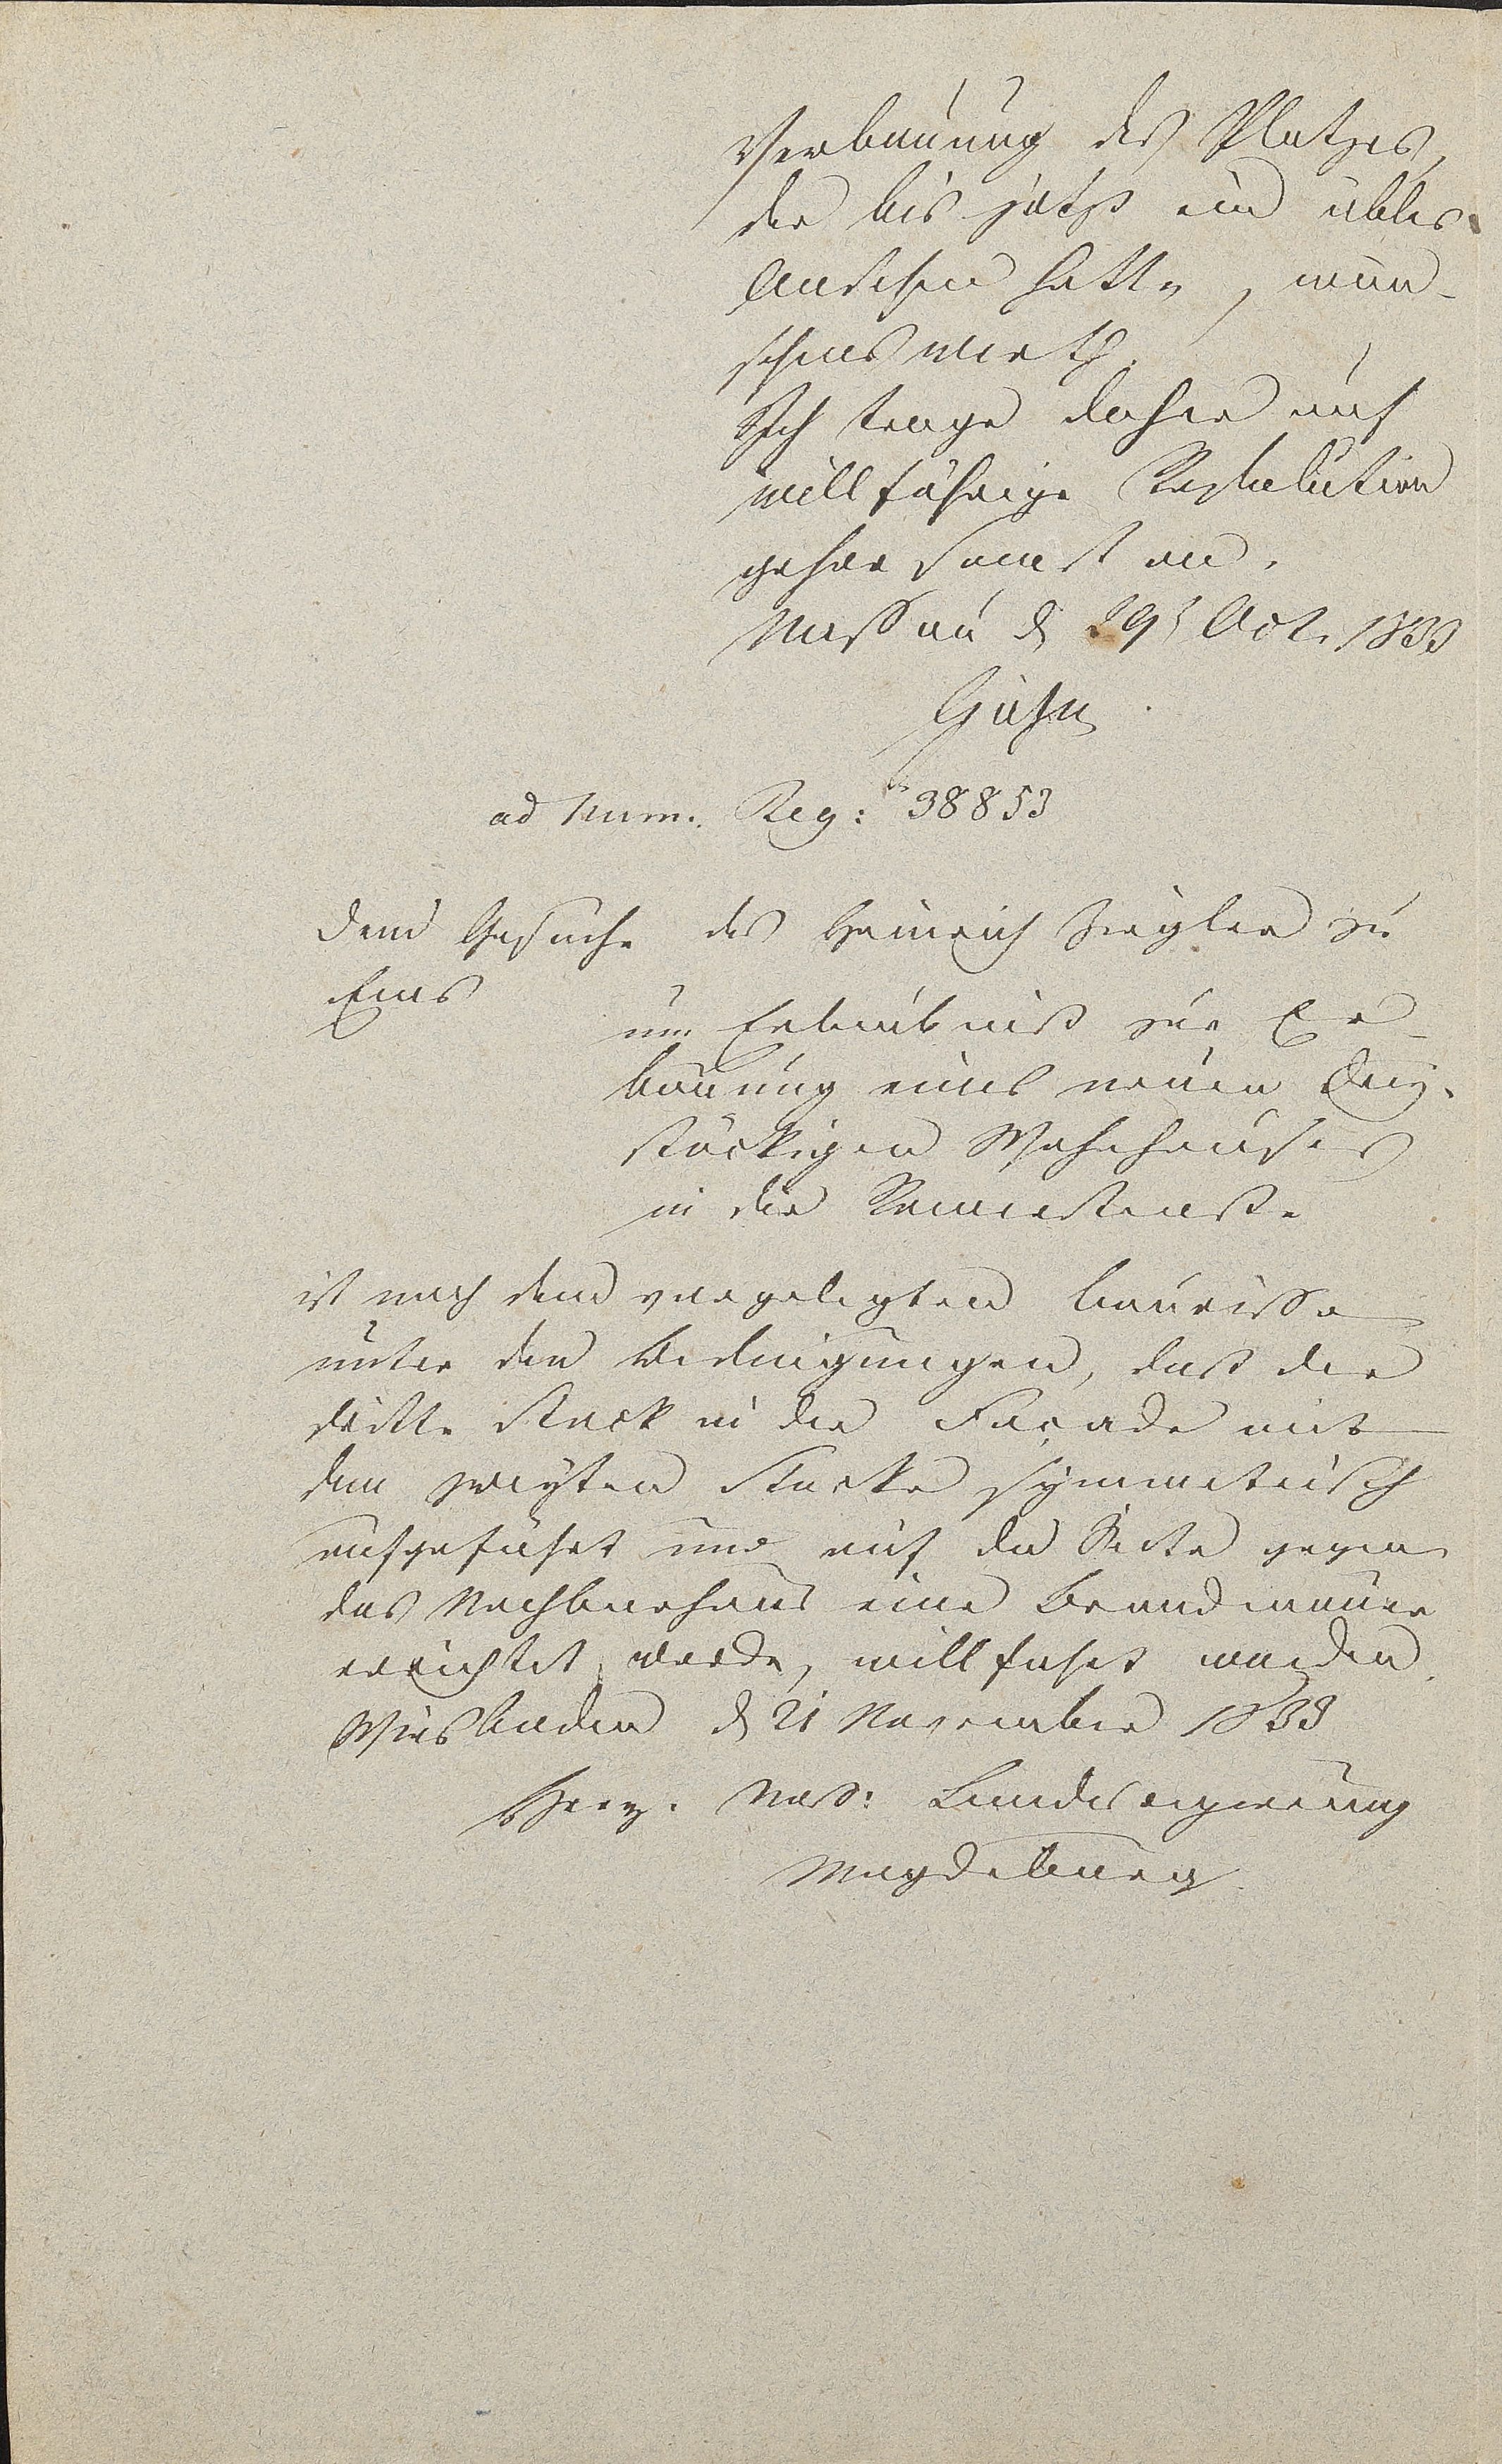 Verbauung des Platzes,
der bis jetzt ein übles
Ansehen hatte, wün-
schenswerth.
Ich trage daher auf
willfährige Resolution
gehorsamst an.
Nassau d 29t Oct. 1833

ad Num. Reg: 38853
Dem Gesuche des Heinrich Ziegler zu
Ems
um Erlaubniß zur Er-
bauung eines neuen drey-
stöckigen Wohnhauses
in der Römerstraße
ist nach dem vorgelegten Baurisse
unter den Bedingungen, daß der
dritte Stock in der Façade mit
dem zweyten Stocke symmetrisch
aufgeführt und auf der Seite gegen
das Nachbarhaus eine Brandmauer
errichtet werde, willfahrt worden.
Wiesbaden d 21 November 1833
Herz. Nass: Landesregierung
Magdeburg.